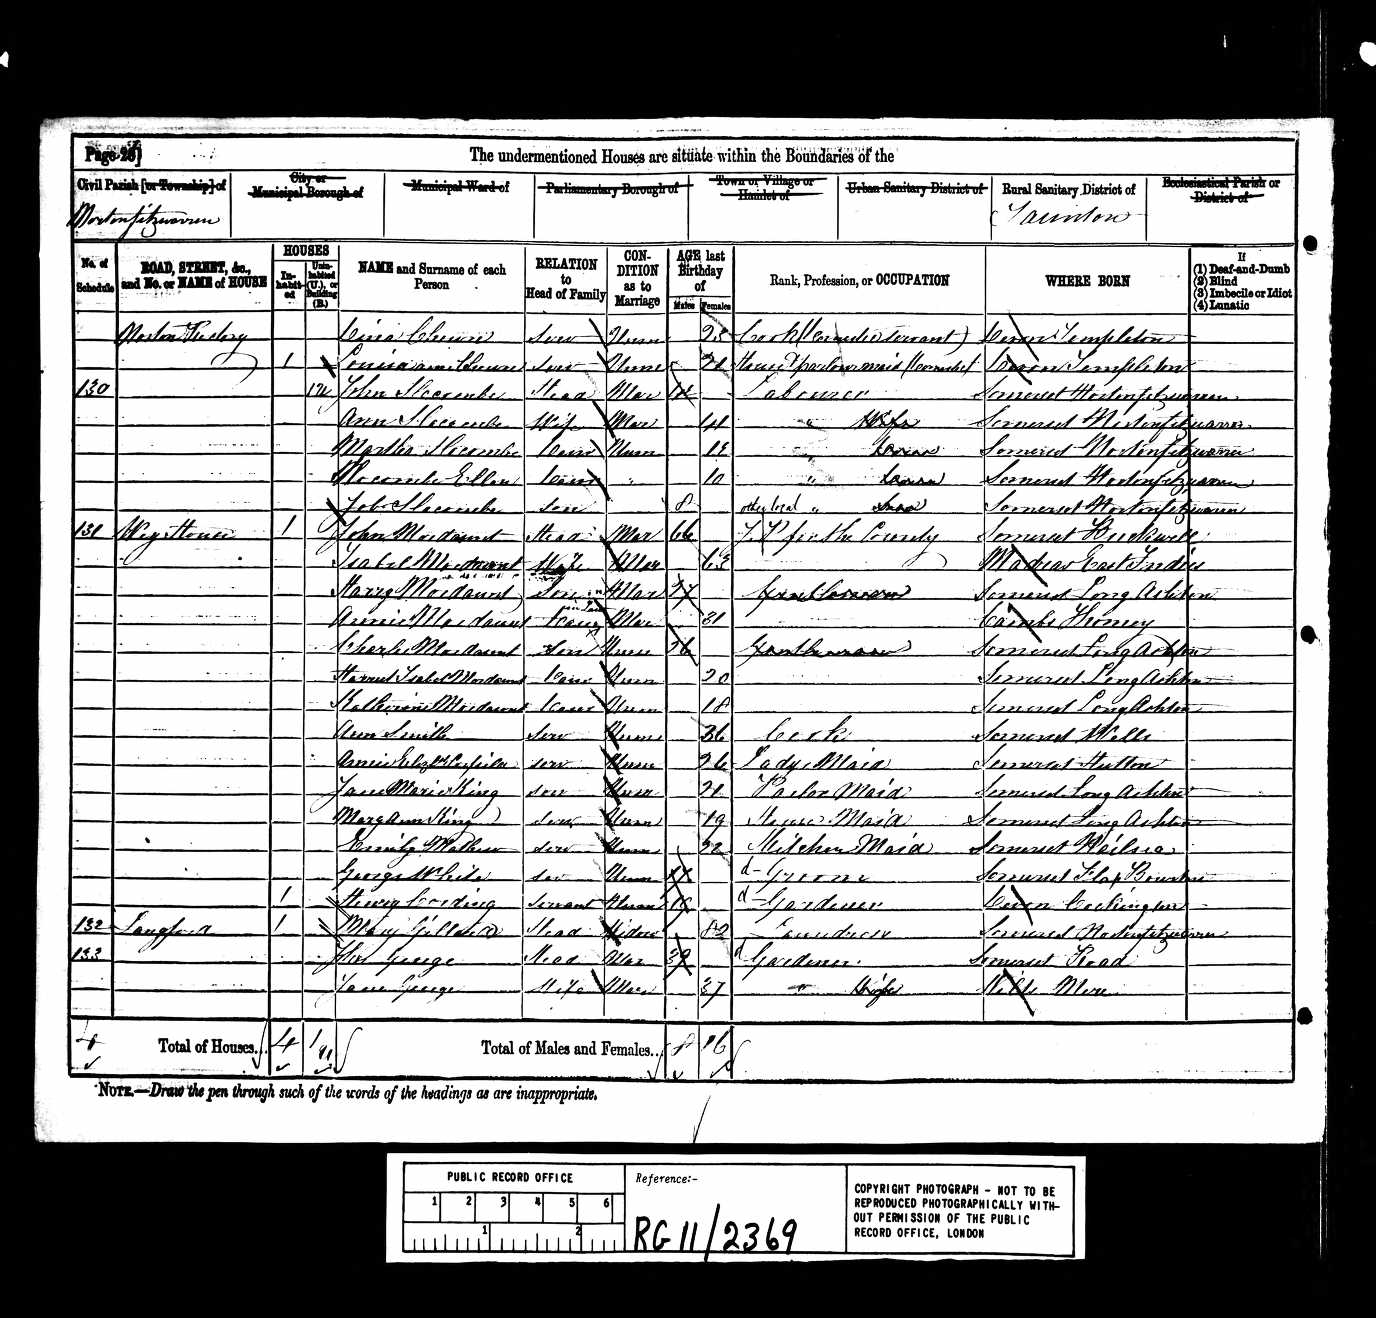 Page 26]
The undermentioned Houses are situate within the Boundaries of the
Civil Parish [or Township] of
City or Municipal Borough of
Municipal Ward of
Parliamentary Borough of
Town or Village or Hamlet of
Urban Sanitary District of
Rural Sanitary District of
Ecclesiastical Parish or District of
Nortonfitzwarren
Taunton
No. of Schedule
ROAD, STREET, &c., and No. or NAME of HOUSE
HOUSES
In-habit-ed
Unin-habited (U.), or Building (B.)
NAME and Surname of each Person
RELATION to Head of Family
CON-DITION as to Marriage
AGE last Birthday of
Males
Females
Rank, Profession, or OCCUPATION
WHERE BORN
If
(1) Deaf-and-Dumb
(2) Blind
(3) Imbecile or Idiot
(4) Lunatic
Norton Rectory Serv Unm 23 Cook (Domestic Servant) Devon Templeton
1 Louisa Serv Unm 21 House & parlour maid (Domestic) Devon Templeton
130 John Slocombe Head Mar Labourer Somerset Nortonfitzwarren
Ann Slocombe Wife Mar 41 " Wife Somerset Nortonfitzwarren
Martha Slocombe Daur Unm 19 " Somerset Nortonfitzwarren
Slocombe Ellen Daur " 10 " Somerset Nortonfitzwarren
Job Slocombe Son 8 " Somerset Nortonfitzwarren
131 House 1 John Mordaunt Head Mar 66 J P for the County Somerset
Isabel Mordaunt Wife Mar 63 Madras East Indies
Harry Mordaunt Son Mar 27 Somerset Long Ashton
Annie Mordaunt Mar 31 Cambs Thorney
Charles Mordaunt Son Unm 26 Somerset Long Ashton
Harriet Isabel Mordaunt Daur Unm 20 Somerset Long Ashton
Katherine Mordaunt Daur Unm 18 Somerset Long Ashton
Ann Smith Serv Unm 36 Cook Somerset Wells
Annie Elizth Serv Unm 26 Lady's Maid Somerset Hutton
Jane Maria King Serv Unm 21 Parlor Maid Somerset Long Ashton
Mary Ann King Serv Unm 19 House Maid Somerset Long Ashton
Emily Mathew Serv Unm 22 Kitchen Maid Somerset Nailsea
George White Serv Unm 17 Groom Somerset Flax Bourton
1 Henry Serv Unm 19 Gardener Devon Cockington
132 Langford 1 Mary Head Widow 82 Laundress Somerset Nortonfitzwarren
133 George Head Mar 39 Gardener Somerset Road
Jane George Wife Mar 37 " Wife Wilts Mere
4 Total of Houses... 4 1 Total of Males and Females... 8 16
NOTE.—Draw the pen through such of the words of the headings as are inappropriate.
PUBLIC RECORD OFFICE
1 2 3 4 5 6
1 2
Reference:-
RG 11/2369
COPYRIGHT PHOTOGRAPH - NOT TO BE
REPRODUCED PHOTOGRAPHICALLY WITH-
OUT PERMISSION OF THE PUBLIC
RECORD OFFICE, LONDON